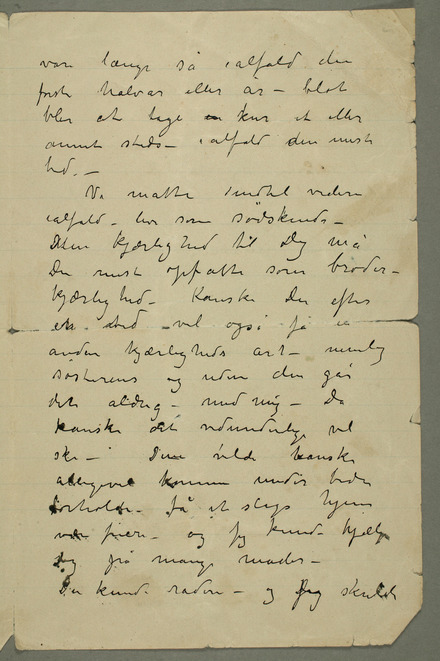 vare længe så ialfald det
første halvår eller år – blot
blev at tage en kur et eller
annet steds – ialfald den meste
tid. –
Vi måtte indtil videre
ialfald – leve som södskende –
Min kjærlighed til Dig må
Du mest opfatte som broder-
kjærlighed – Kanske Du efter
en tid – vil også få en
anden kjærligheds art – nemlig
søsterens og uden den går
det aldrig – med mig – Da
kanske det vidunderlige vil
ske – Du vilde kanske
alligevel komme under bedre
forholde – få et slags hjem
være friere – og jeg kunde hjælpe
Dig på mange måder –
Du kunde radere – og Jeg skulde